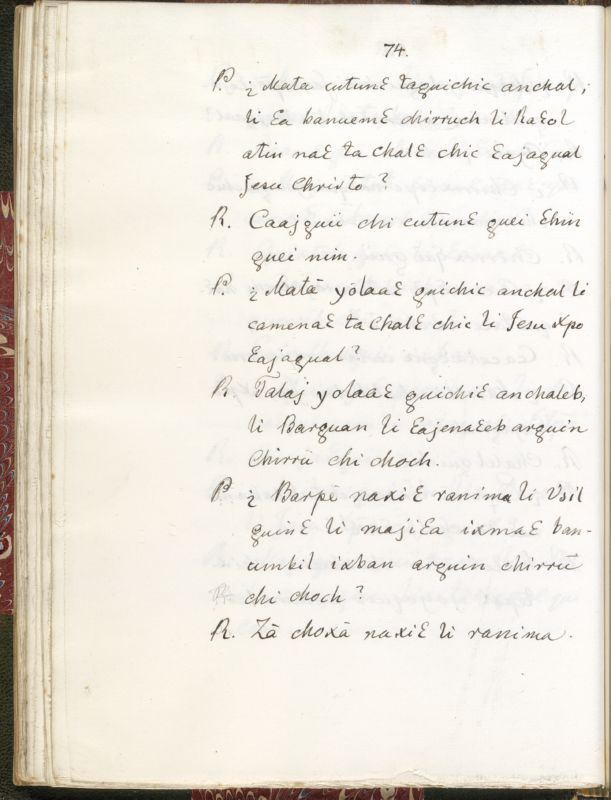 74.
P. ¿ Mata cutunƐ taguichic anchal,
li Ɛa banuemƐ chirruch li RaƐol
atin naƐ ta ChalƐ chic Ɛajagual
Jesu Christo?
R. Caajguii chi cutunƐ quei Ɛhin
quei nim.
P. ¿ Matā yōlaaƐ quichic anchal li
camenaƐ ta ChalƐ chic li Jesu xpo
Ɛajagual?
R. Talaj yolaaƐ quichiƐ anchaleb,
li Barguan li ƐajenaƐeb arguin
Chirrū chi choch.
P. ¿ Barpē naxiƐ ranima li Usil
guinƐ li majiƐa ixmaƐ ban-
umbil ixban arguin chirrū
chi choch?
R. Zā choxā naxiƐ li ranima.